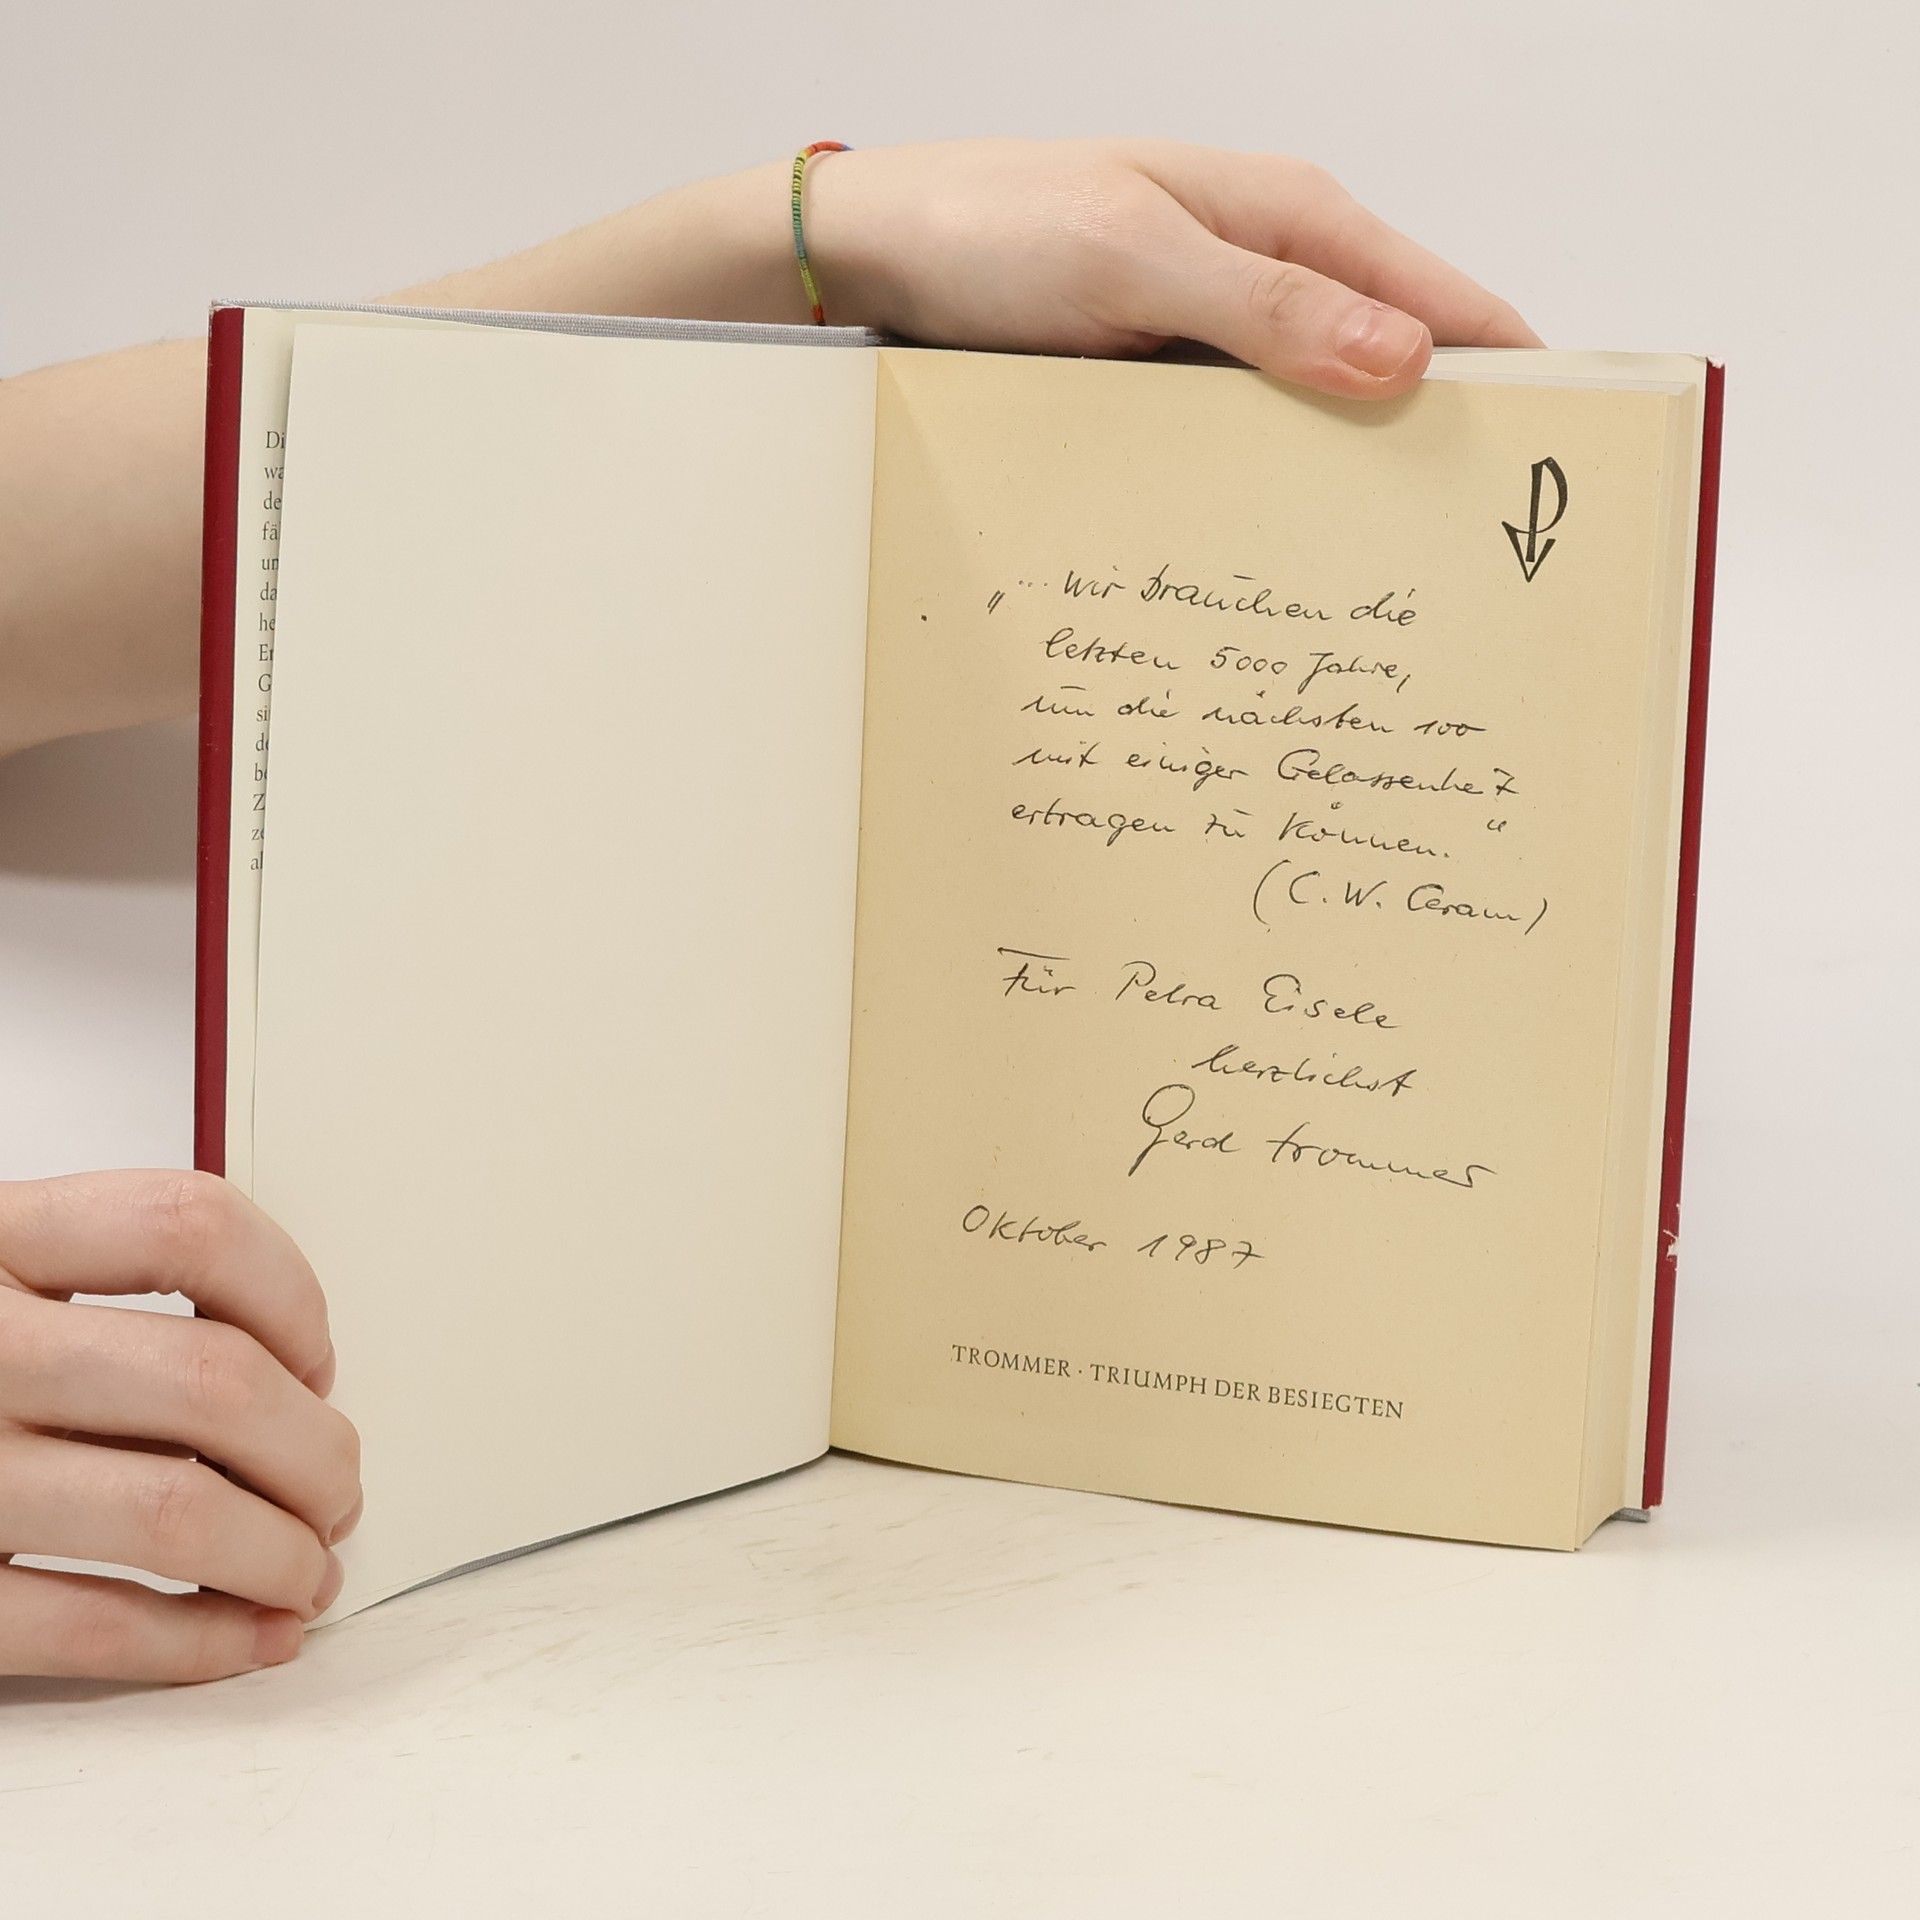 Di
wa
de
fä
un
da
he
Er
G
si
de
be
Z
ze
al
P
„... wir brauchen die
letzten 5000 Jahre,
um die nächsten 100
mit einiger Gelassenheit
ertragen zu können."
(C. W. Ceram)
Für Petra Eisele
herzlichst
Gerd Trommer
Oktober 1987
TROMMER · TRIUMPH DER BESIEGTEN